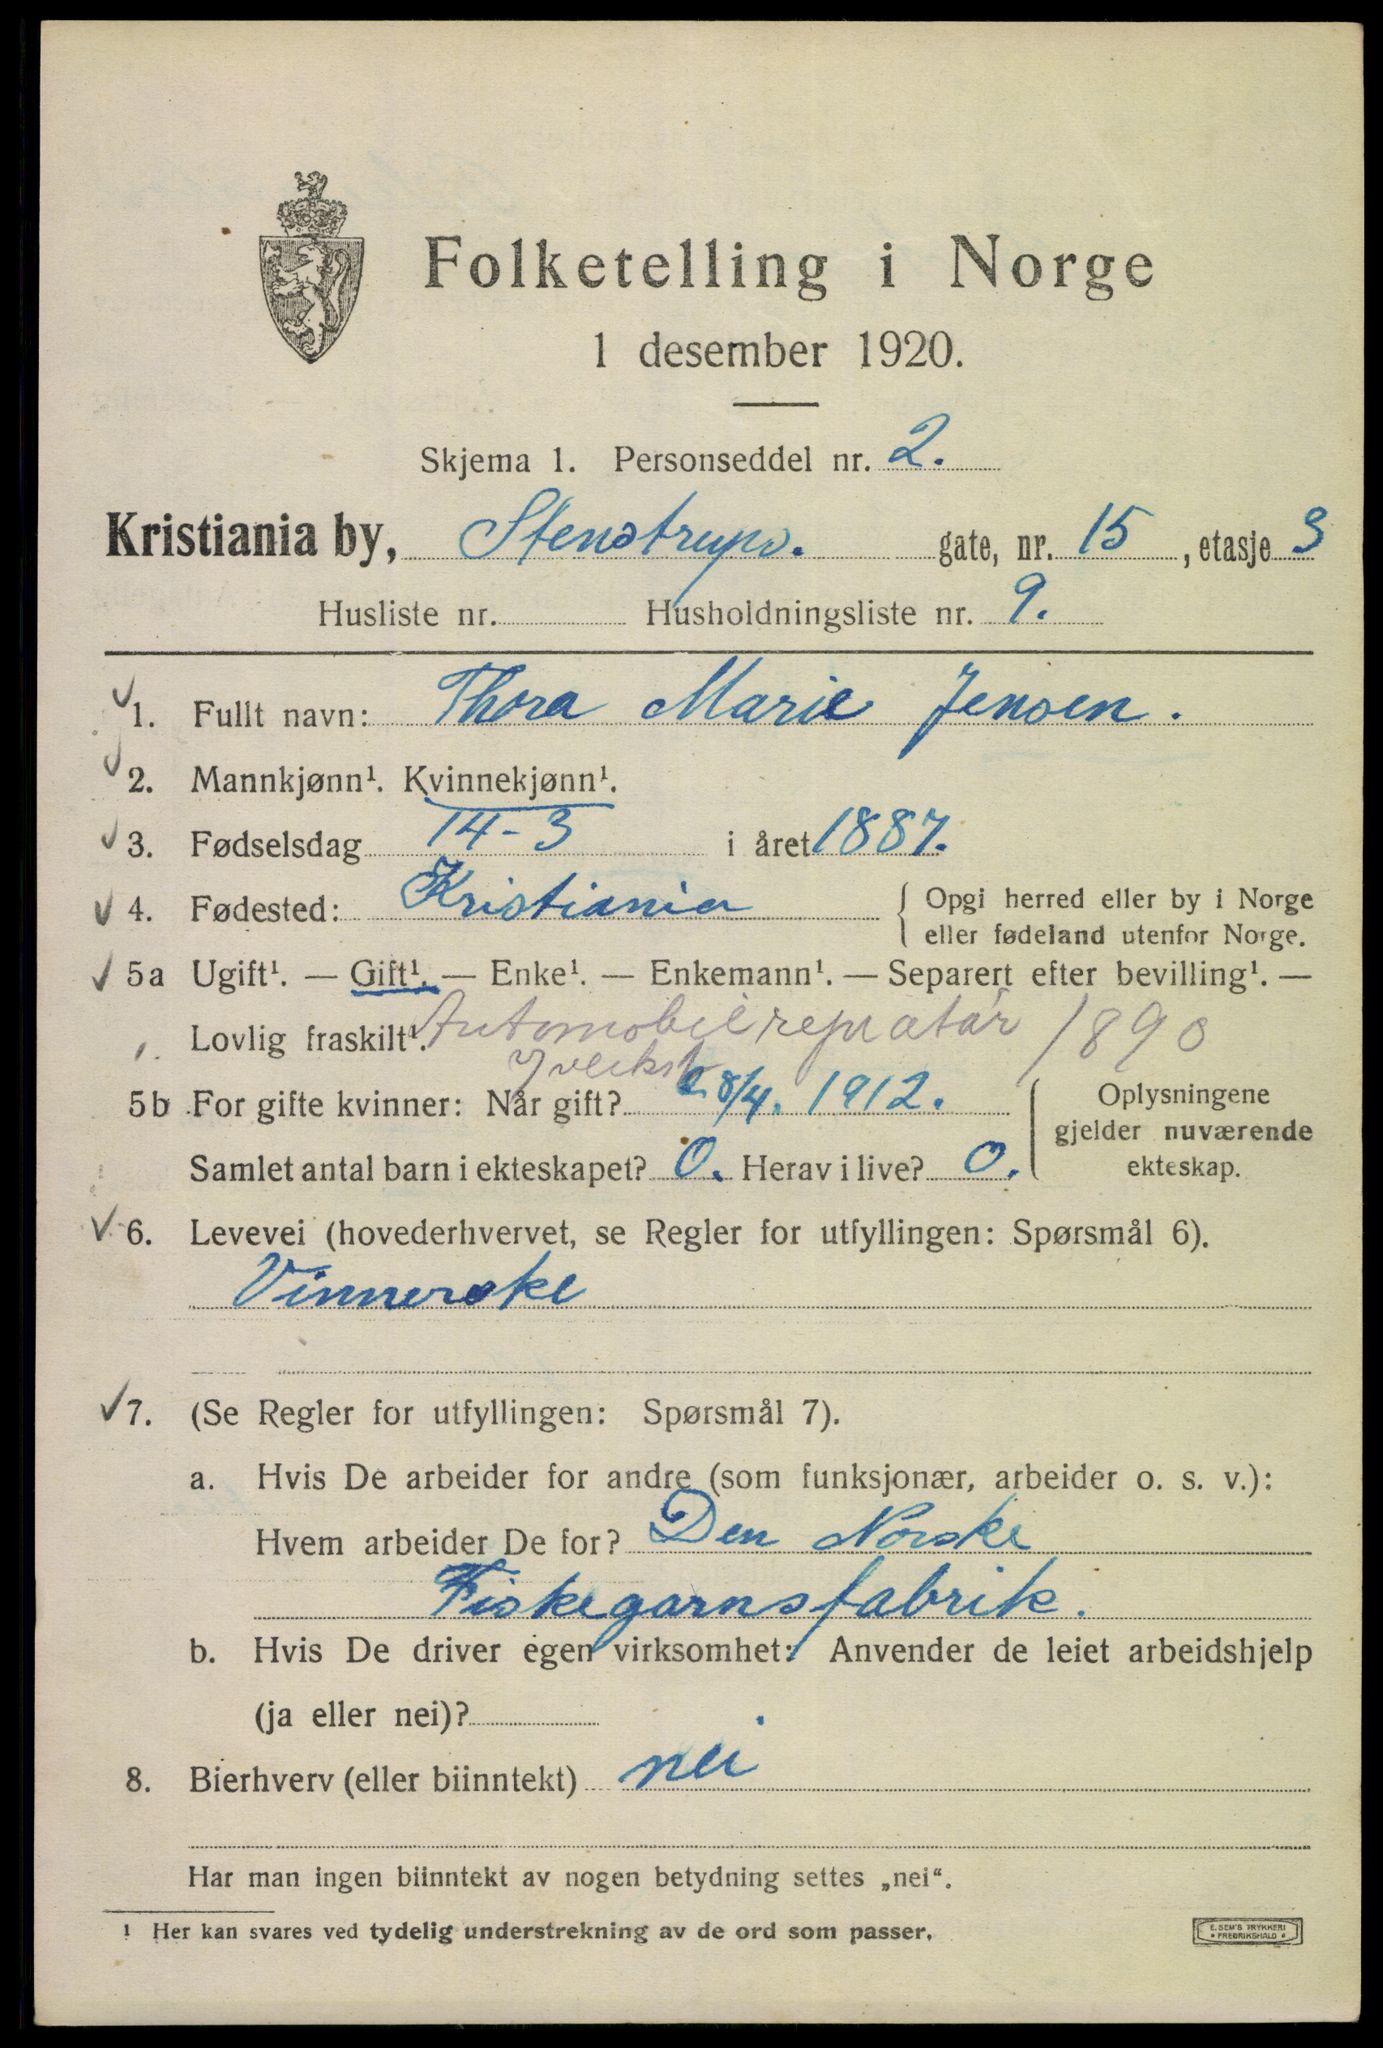 Folketelling i Norge
1 desember 1920.
Skjema 1. Personseddel nr. 2.
Kristiania by, Stenstrups. gate, nr. 15, etasje 3
Husliste nr. Husholdningsliste nr. 9.
1. Fullt navn: Thora Marie Jensen.
2. Mannkjønn¹. Kvinnekjønn¹.
3. Fødselsdag 14-3 i året 1887.
4. Fødested: Kristiania { Opgi herred eller by i Norge
eller fødeland utenfor Norge.
5a Ugift¹. — Gift¹. — Enke¹. — Enkemann¹. — Separert efter bevilling¹. —
Lovlig fraskilt¹. Automobilrepratør 1890
5b For gifte kvinner: Når gift? 28/4. 1912. { Oplysningene
gjelder nuværende
ekteskap.
Samlet antal barn i ekteskapet? 0. Herav i live? 0.
6. Levevei (hovederhvervet, se Regler for utfyllingen: Spørsmål 6).
Vinnerske
7. (Se Regler for utfyllingen: Spørsmål 7).
a. Hvis De arbeider for andre (som funksjonær, arbeider o. s. v.):
Hvem arbeider De for? Den Norske
Fiskegarnsfabrik.
b. Hvis De driver egen virksomhet: Anvender de leiet arbeidshjelp
(ja eller nei)?
8. Bierhverv (eller biinntekt) nei
Har man ingen biinntekt av nogen betydning settes „nei“.
¹ Her kan svares ved tydelig understrekning av de ord som passer.
E. SEM'S TRYKKERI
FREDRIKSHALD